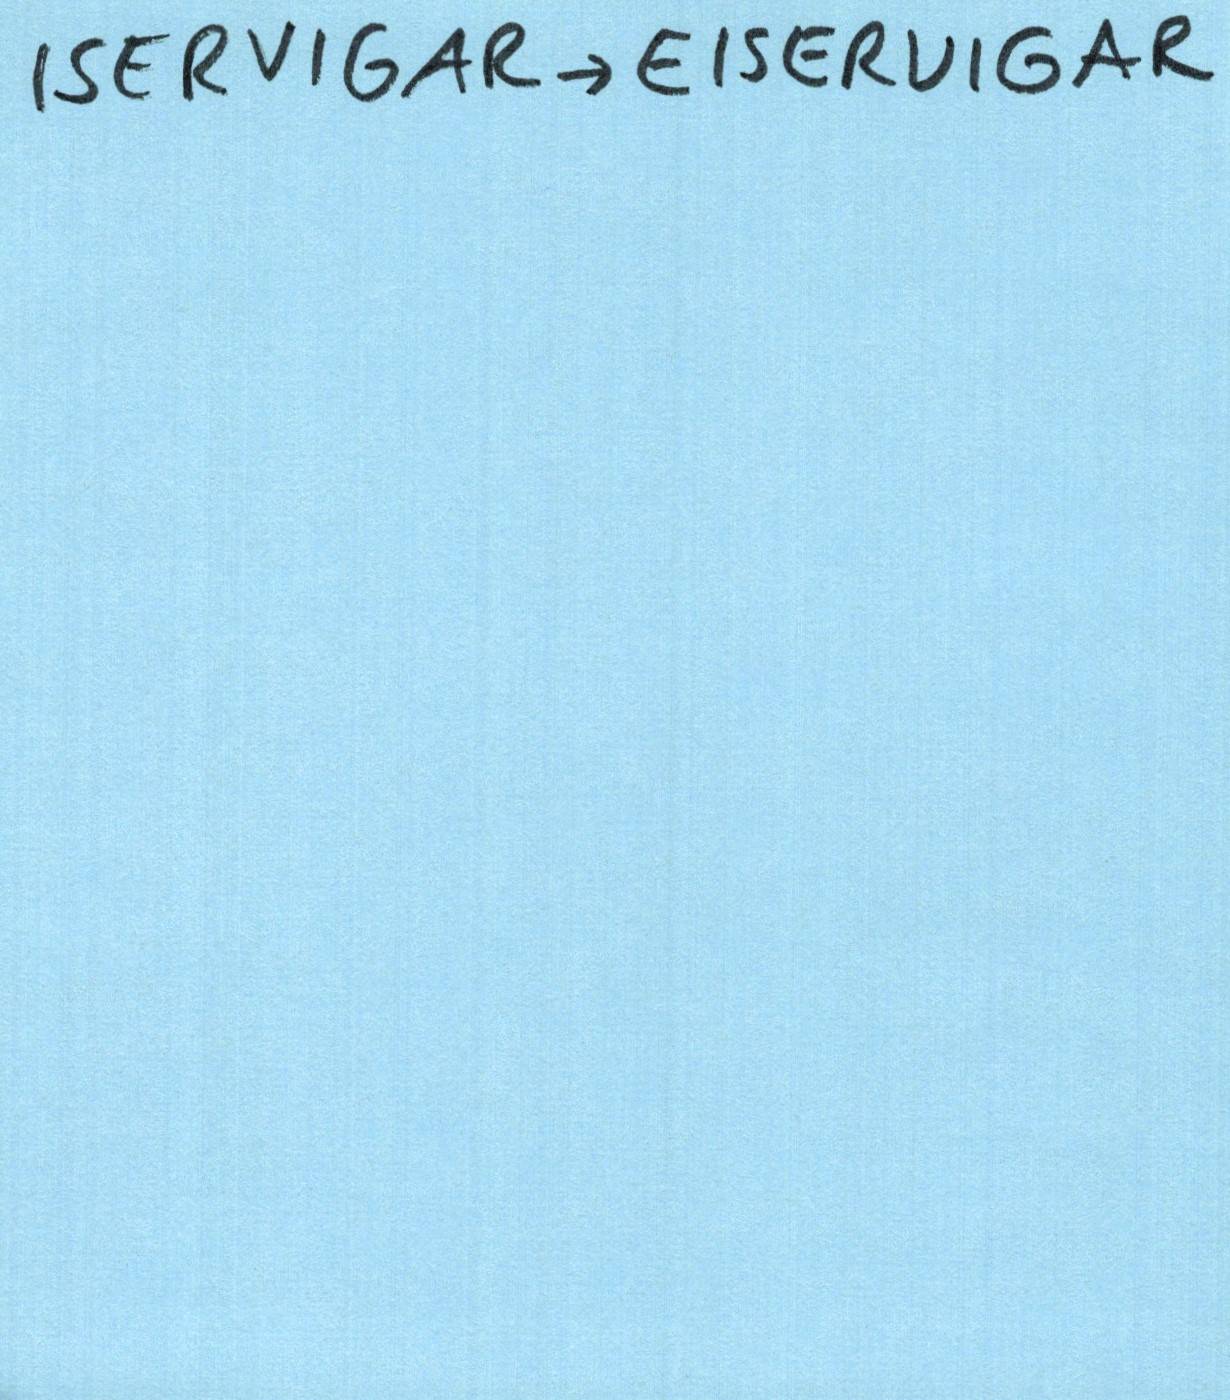 ISERVIGAR → EISERVIGAR